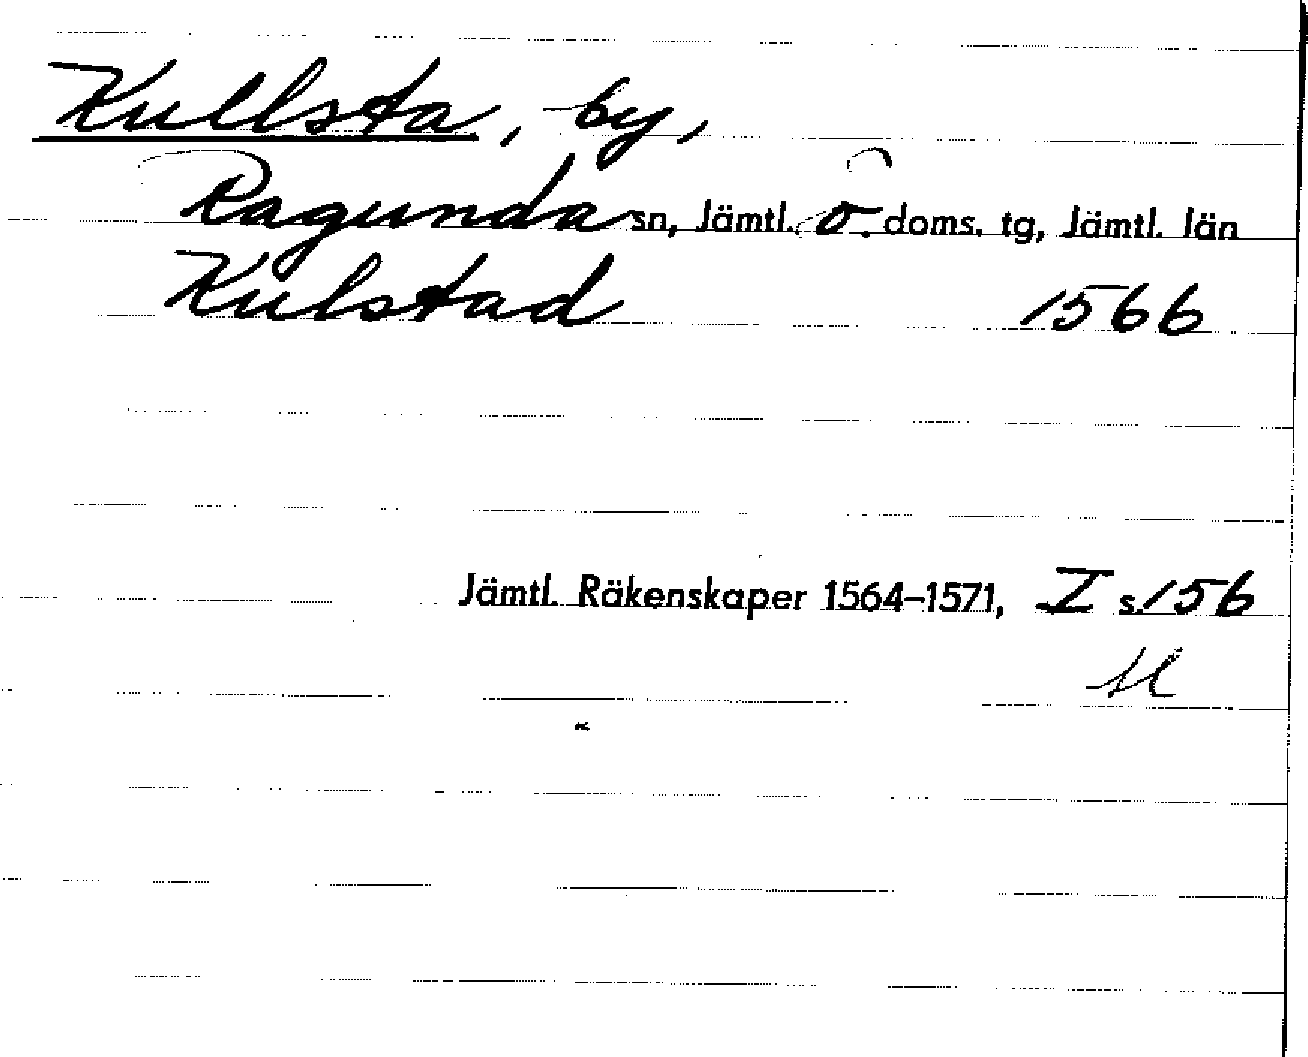 Kullsta, by,
Ragunda sn, Jämtl. ö. doms. tg, Jämtl. län
Kulstad 1566
Jämtl. Räkenskaper 1564–1571, I s. 156